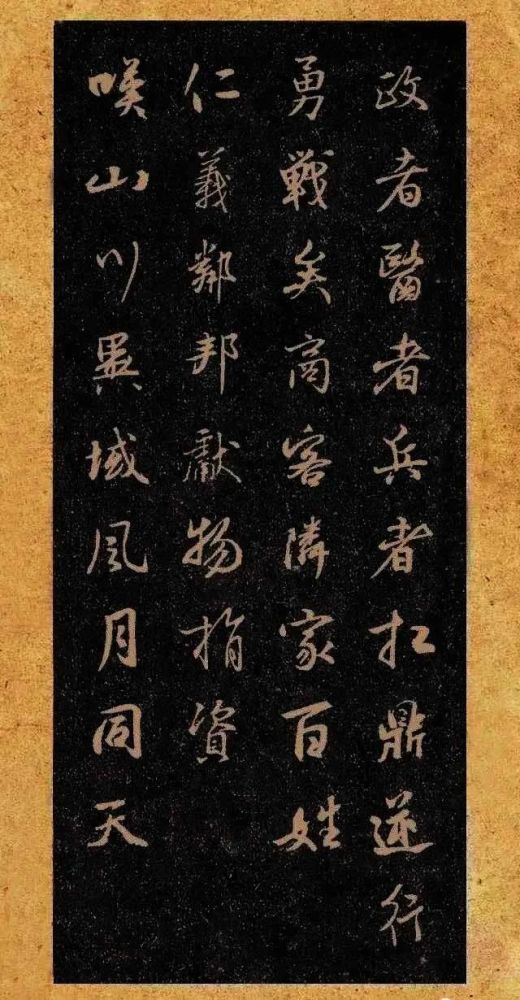 政者醫者兵者扛鼎逆行
勇戰矣商客隣家百姓
仁義鄰邦獻物捐資
嘆山川異域風月同天